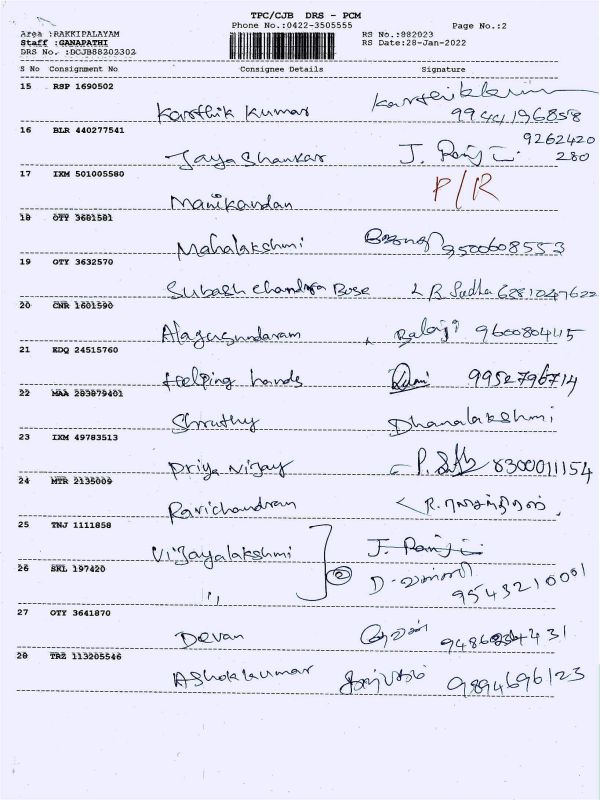 TPC/CJB DRS - PCM
Phone No.:0422-3505555 Page No.:2
Area :RAKKIPALAYAM RS No.:882023
Staff :GANAPATHI RS Date:28-Jan-2022
DRS No. :DCJB88202302
S No Consignment No Consignee Details Signature
15 RSP 1690502
Karthik Kumar Karthikkum
9944196858
16 BLR 440277541 9262420
Jaya Shankar J. 280
17 IXM 501005580 P/R
Manikandan
18 OTY 3681581
Mahalakshmi 9500608553
19 OTY 3632570
Subash Chandra Bose L R Sudha 6281047622
20 CNR 1601590
Alagarsundaram Balaji 9600804115
21 EDQ 24515760
Helping hands 9952796714
22 MAA 283879401
Shruthy Dhanalakshmi
23 IXM 49783513
Priya Vijay P. 8300011154
24 MTR 2135009
Ravichandran R.
25 TNJ 1111858
Vijayalakshmi J.
26 SKL 197420 2
" D. 9543210001
27 OTY 3641870
Devan தேவன்
28 TRZ 113205546
Ashokkumar 9894696123